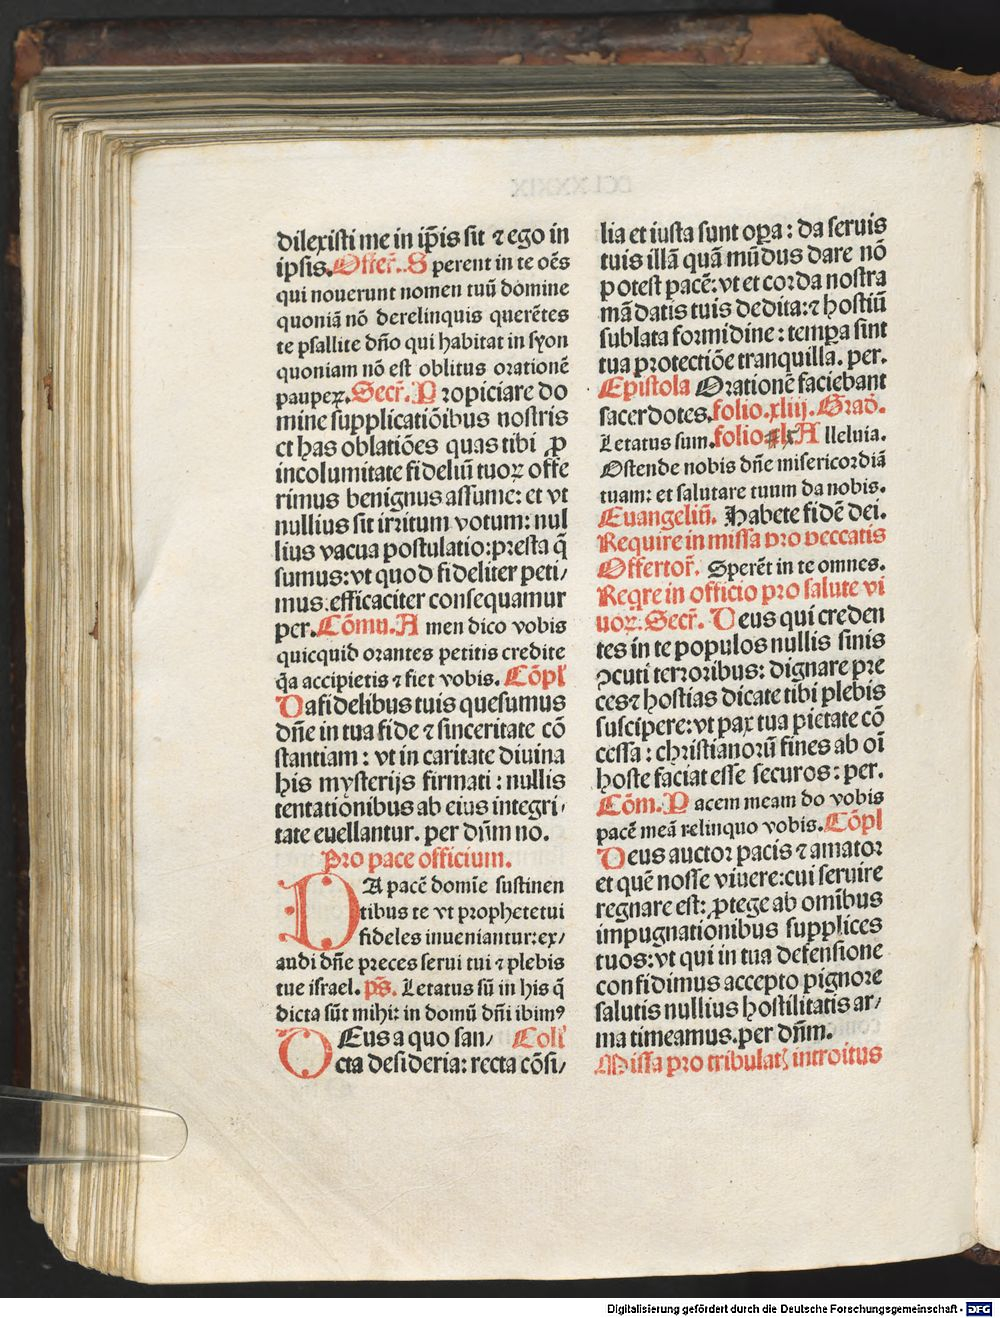 dilexisti me in ip̄is sit ⁊ ego in
ipsis. Offer̄. Sperent in te oēs
qui nouerunt nomen tuū domine
quoniā nō derelinquis querētes
te psallite dn̄o qui habitat in syon
quoniam nō est oblitus orationē
pauperꝝ. Secr̄. Propiciare do
mine supplicatiōibus nostris
et has oblatiōes quas tibi ꝓ
incolumitate fideliū tuoꝝ offe
rimus benignus assume: et vt
nullius sit irritum votum: nul
lius vacua postulatio: presta q̄
sumus: vt quod fideliter peti/
mus efficaciter consequamur
per. Cōmu. Amen dico vobis
quicquid orantes petitis credite
q̄a accipietis ⁊ fiet vobis. Cōpl̄
Da fidelibus tuis quesumus
dn̄e in tua fide ⁊ sinceritate cō
stantiam: vt in caritate diuina
his mysterijs firmati: nullis
tentationibus ab eius integri/
tate euellantur. per dn̄m no.
Pro pace officium.
DA pacē domīe sustinen
tibus te vt prophete tui
fideles inueniantur: ex/
audi dn̄e preces serui tui ⁊ plebis
tue israel. ps̄. Letatus sū in his q̄
dicta sūt mihi: in domū dn̄i ibimꝰ
DEus a quo san/ Coll̄
cta desideria: recta cōsi/
lia et iusta sunt oꝑa: da seruis
tuis illā quā mūdus dare nō
potest pacē: vt et corda nostra
mādatis tuis dedita: ⁊ hostiū
sublata formidine: tempa sint
tua protectiōe tranquilla. per.
Epistola Orationē faciebant
sacerdotes. folio. xliij. Grad.
Letatus sum. folio lx Alleluia.
Ostende nobis dn̄e misericordiā
tuam: et salutare tuum da nobis.
Euangeliū. Habete fidē dei.
Require in missa pro peccatis
Offertor̄. Sperēt in te omnes.
Reqre in officio pro salute vi
uoꝝ. Secr̄. Deus qui creden
tes in te populos nullis sinis
ꝯcuti terroribus: dignare pre
ces ⁊ hostias dicate tibi plebis
suscipere: vt pax tua pietate cō
cessa: christianorū fines ab oī
hoste faciat esse securos: per.
Cōm. Pacem meam do vobis
pacē meā relinquo vobis. Cōpl
Deus auctor pacis ⁊ amator
et quē nosse viuere: cui seruire
regnare est: ꝓtege ab omībus
impugnationibus supplices
tuos: vt qui in tua defensione
confidimus accepto pignore
salutis nullius hostilitatis ar/
ma timeamus. per dn̄m.
Missa pro tribulatꝭ introitus
Digitalisierung gefördert durch die Deutsche Forschungsgemeinschaft - DFG